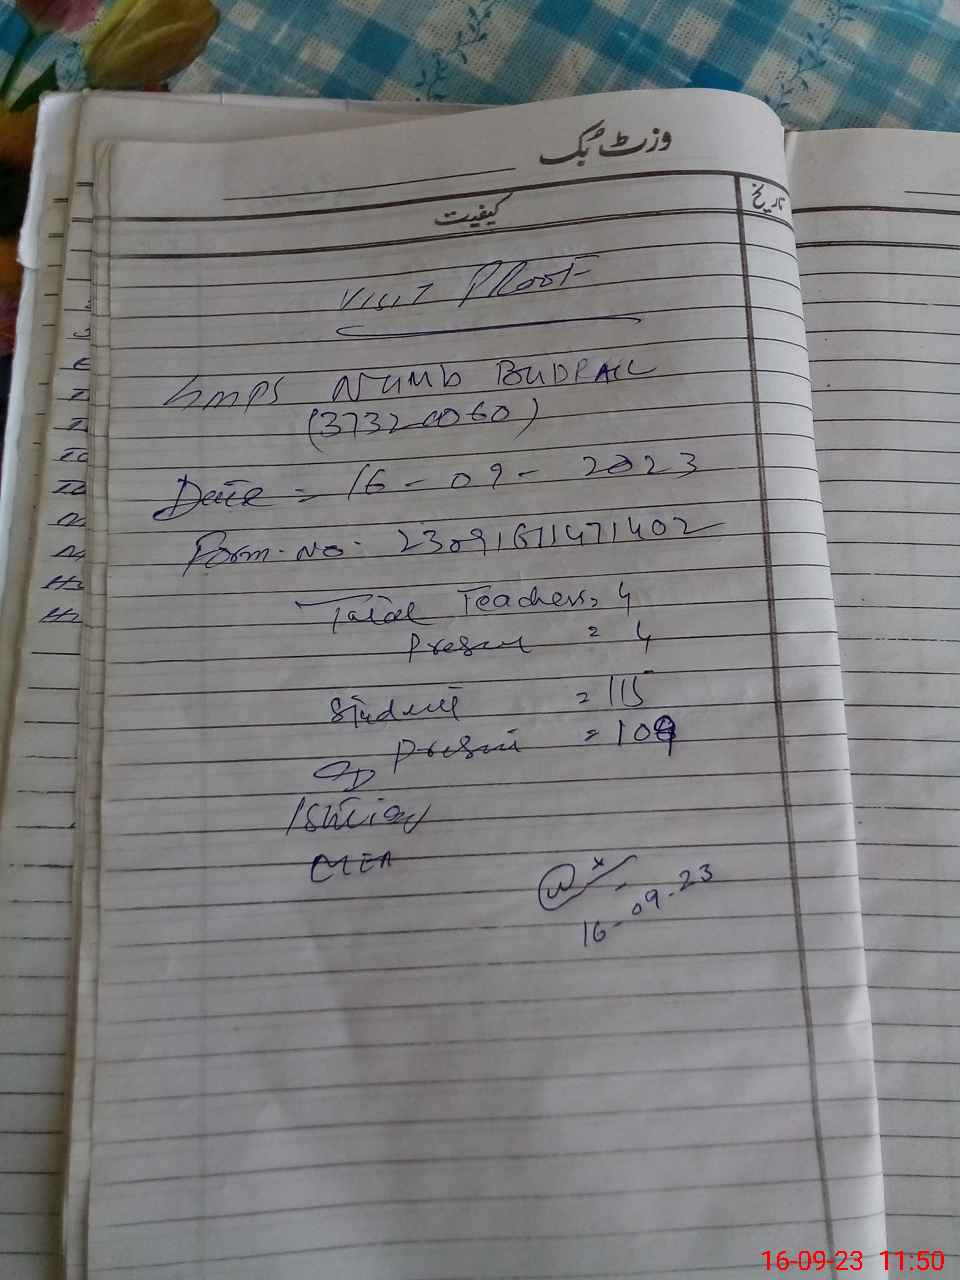 وزٹ بُک
تاریخ
کیفیت
VISIT PROOF
GMPS NUMB BUDPAL
(37320060)
Date = 16 - 09 - 2023
Form. No. 23091611471402
Total Teachers = 4
Present = 4
Student = 115
Present = 109
Ishtiaq
MEA
16-09-23
16-09-23 11:50